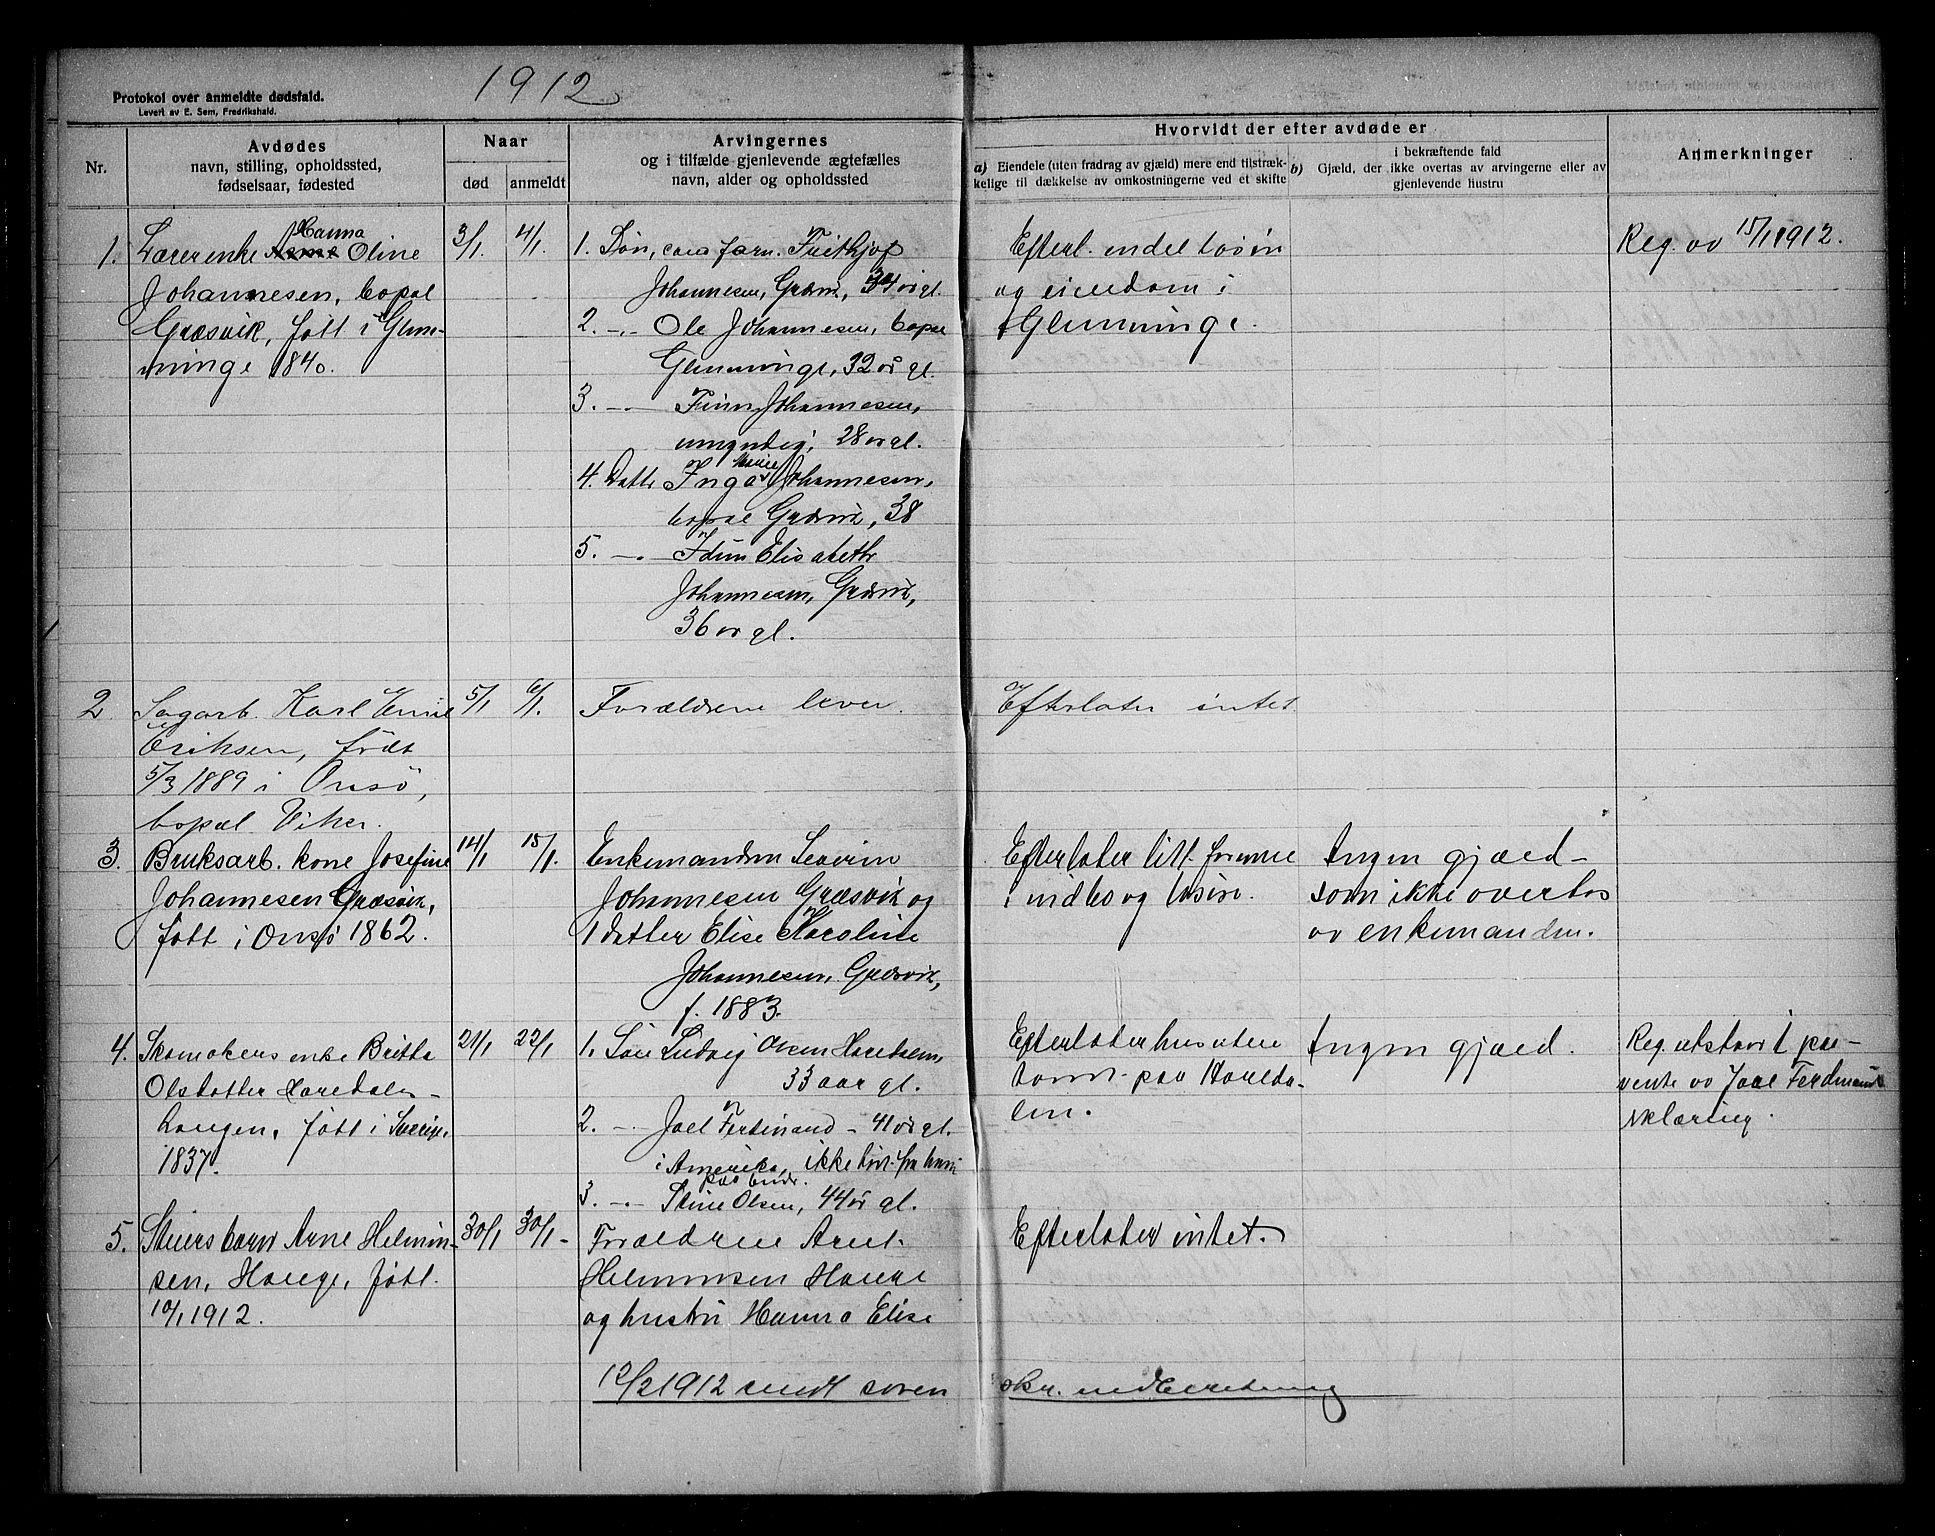 1912
Protokol over anmeldte dødsfald.
Levert av E. Sem, Fredrikshald.
Nr.
Avdødes
navn, stilling, opholdssted,
fødselsaar, fødested
Naar
død
anmeldt
Arvingernes
og i tilfælde gjenlevende ægtefælles
navn, alder og opholdssted
Hvorvidt der efter avdøde er
a) Eiendele (uten fradrag av gjæld) mere end tilstræk-
kelige til dækkelse av omkostningerne ved et skifte
b) Gjæld, der i bekræftende fald ikke overtas av arvingerne eller av
gjenlevende hustru
Anmerkninger
1.
Hanna
Lærerenke Oline
Johannesen, bopæl
Græsvik, født i Glem-
minge 1840.
3/1
4/1.
1. Søn, Frithjof
Johannesen, Græsvik, 34 år gl.
2. -..- Ole Johannesen, bopæl
Glemminge, 32 år gl.
3. -..- Finn Johannesen,
umyndig, 28 år gl.
4. Datter Inga Marie Johannesen,
bopæl Græsvik, 38
5. -..- Idun Elisabeth
Johannesen, Græsvik,
36 år gl.
Efterl. endel løsøre
og eiendom i
Glemminge.
Reg. av 15/1 1912.
2
Sagarb. Karl Emil
Eriksen, født
5/3 1889 i Onsø,
bopæl Viker.
5/1
6/1.
Forældrene lever.
Efterlater intet.
3.
Bruksarb. kone Josefine
Johannesen Græsvik,
født i Onsø 1862.
14/1
15/1.
Enkemanden Severin
Johannesen Græsvik og
1 datter Elise Karoline
Johannesen, Græsvik,
f. 1883.
Efterlater litt formue
i indbo og løsøre.
Ingen gjæld
som ikke overtas
av enkemanden.
4.
Skomakers enke Britta
Olsdatter Haredalen
Langen, født i Sverige,
1837.
21/1
22/1
1. Søn Ludvig Olsen Haredalen,
33 aar gl.
2. -..- Joel Ferdinand - 41 år gl.
i Amerika, ikke hørt fra ham
3. -..- Stine Olsen, 44 år gl.
Efterlater hus uten
tomt paa Hareda-
len.
Ingen gjæld.
Reg. utstaar i paa-
vente av Joel Ferdinands
erklæring.
5.
Stuers barn Arne Helmin-
sen, Hauge, født
10/1 1912.
30/1
30/1 -
Forældrene Arnt
Helminsen Hauge
og hustru Hanna Elise
Efterlater intet.
12/2 1912 sendt soren
skr. indberetning